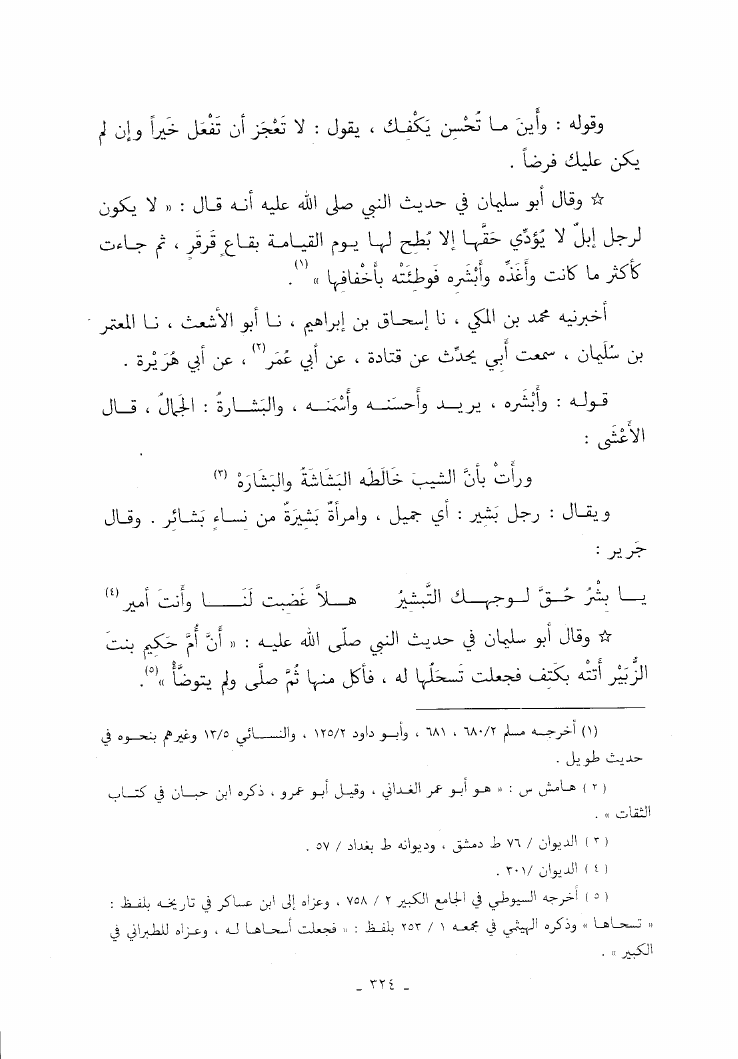 وقوله : وأَينَ مـا تُحْسن يَكْفِـك ، يقول : لا تَعْجَز أن تَفْعَل خَيراً وإن لم
يكن عليك فرضاً .
☆ وقال أبو سليمان في حديث النبي صلى الله عليه أنـه قـال : « لا يكون
لرجل إبلٌ لا يُؤدِّي حَقَّهـا إلا بُطِح لهـا يـوم القيـامـة بقـاعٍ قَرقَرٍ ، ثم جـاءت
كأكثرِ ما كانت وأَغَذِّه وأَبْشَره فَوطِئَتْه بأَخْفافِها »(١).
أخبرنيه محمد بن المكي ، نا إسحـاق بن إبراهيم ، نـا أبو الأشعث ، نـا المعتمر
بن سُلَيمان ، سمعت أَبي يحدِّث عن قتادة ، عن أبي عُمَر(٢) ، عن أبي هُرَيْرة .
قولـه : وأَبْشَره ، يريـد وأحسَنـه وأَسْمَنـه ، والبَشـارةُ : الجَمالُ ، قـال
الأَعْشَى :
ورأَتْ بأنَّ الشيبَ خَالَطَه البَشَاشَةُ والبَشَارَهْ (٣)
ويقـال : رجل بَشير : أي جميل ، وامرأةٌ بَشيرَةٌ من نسـاءٍ بَشـائر . وقـال
جَرير :
يـا بِشْرُ حُـقَّ لـوجهـك التَّبشيرُ هـلاَّ غَضِبت لَنَـا وأنتَ أمير (٤)
☆ وقال أبو سليمان في حديث النبي صلّى الله عليـه : « أَنَّ أُمَّ حَكيمٍ بنتَ
الزُّبَيْر أتَتْه بكَتِف فجعلت تَسحَلُها له ، فأكل منها ثُمَّ صلَّى ولم يتوضَّأْ »(٥).
(١) أخرجـه مسلم ٦٨٠/٢ ، ٦٨١ ، وأبـو داود ١٢٥/٢ ، والنسـائي ١٢/٥ وغيرهم بنحـوه في
حديث طويل .
(٢) هـامش س : « هـو أبـو عمر الغـداني ، وقيـل أبـو عمرو ، ذكره ابن حبـان في كتـاب
الثقات » .
(٣) الديوان / ٧٦ ط دمشق ، وديوانه ط بغداد / ٥٧ .
(٤) الديوان /٣٠١ .
(٥) أخرجه السيوطي في الجامع الكبير ٢ / ٧٥٨ ، وعزاه إلى ابن عساكر في تاريخه بلفظ :
« تسحـاهـا » وذكره الهيثمي في مجمعـه ١ / ٢٥٣ بلفـظ : « فجعلت أسحـاهـا لـه ، وعزاه للطبراني في
الكبير » .
ـ ٣٢٤ ـ